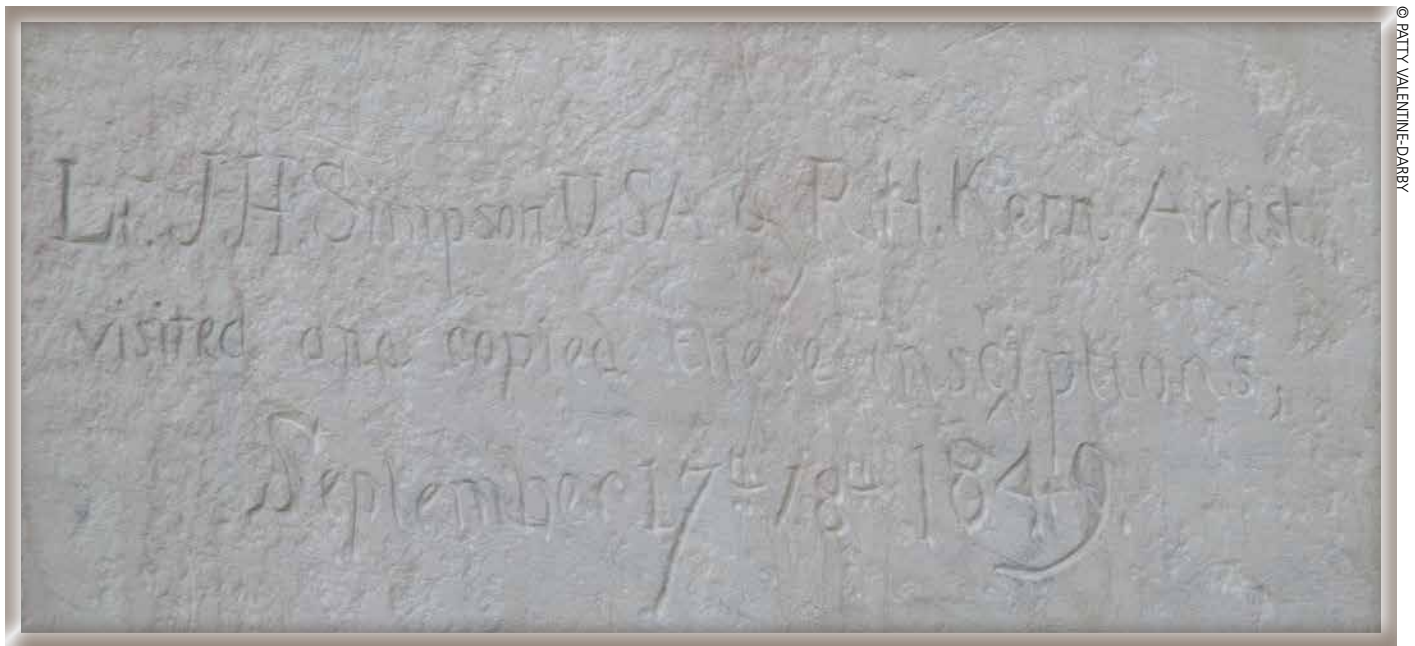 Lt. J.H. Simpson U.S.A. & R.H. Kern Artist,
visited and copied these insciptions,
September 17th 18th 1849.
© PATTY VALENTINE-DARBY